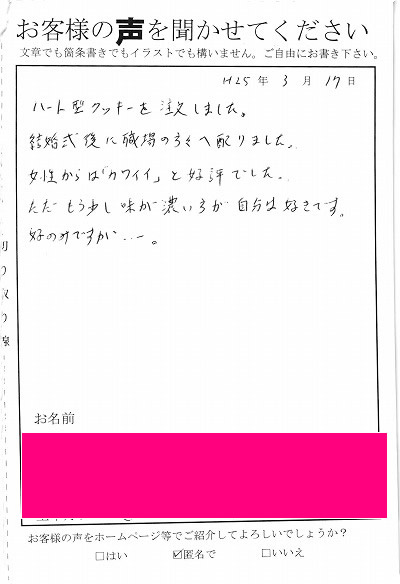 お客様の声を聞かせてください
文章でも箇条書きでもイラストでも構いません。ご自由にお書き下さい。
H25年 3月 17日
ハート型クッキーを注文しました。
結婚式後に職場の方々へ配りました。
女性からは「カワイイ」と好評でした。
ただもう少し味が濃い方が自分は好きです。
好のみですが・・・。
切り取り線
お名前
お客様の声をホームページ等でご紹介してよろしいでしょうか？
□はい ☑匿名で □いいえ